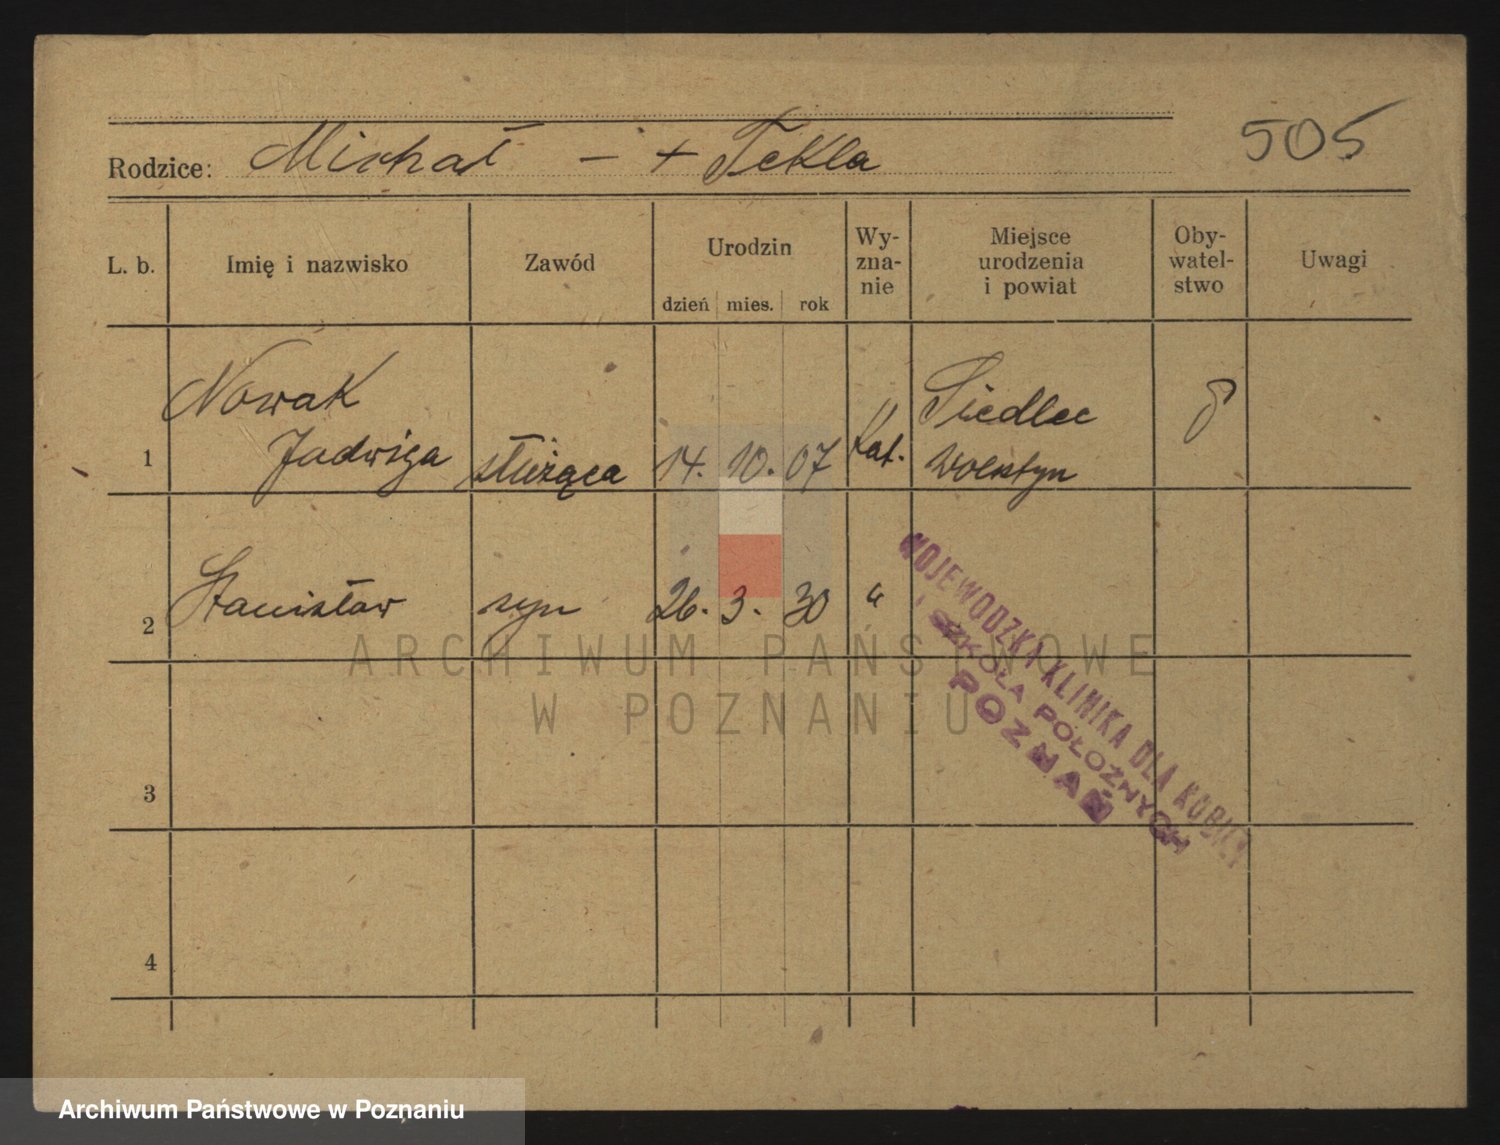 505
Rodzice: Michał – + Tekla
L. b. Imię i nazwisko Zawód Urodzin dzień mies. rok Wy-zna-nie Miejsce urodzenia i powiat Oby-watel-stwo Uwagi
Nowak Siedlec
1 Jadwiga służąca 14. 10. 07 kat. Wolsztyn
2 Stanisław syn 26. 3. 30 "
WOJEWÓDZKA KLINIKA DLA KOBIET
I SZKOŁA POŁOŻNYCH
POZNAŃ
3
4
ARCHIWUM PAŃSTWOWE
W POZNANIU
Archiwum Państwowe w Poznaniu